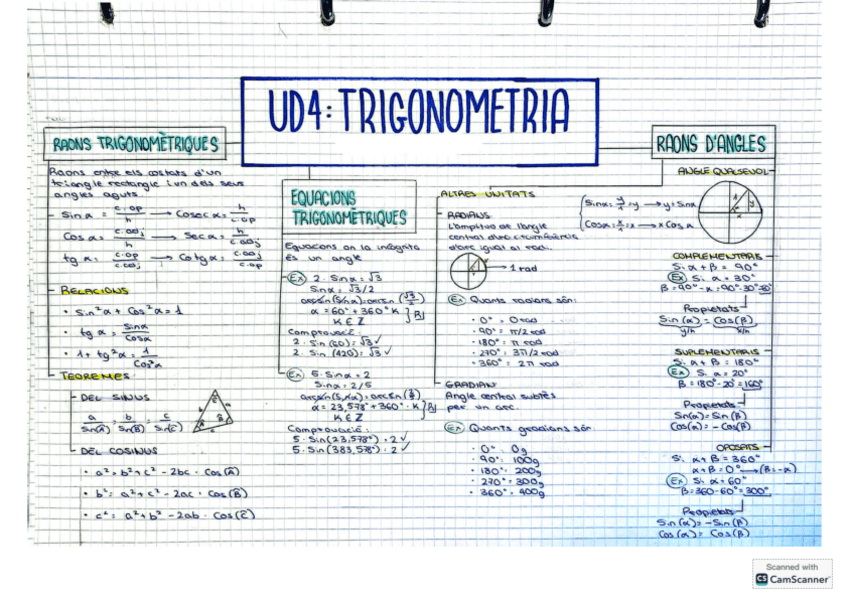 UD4: TRIGONOMETRIA
RAONS TRIGONOMÈTRIQUES
Raons entre els costats d'un
triangle rectangle i un dels seus
angles aguts.
Sin α = c.op/h → Cosec α = h/c.op
Cos α = c.coj/h → Sec α = h/c.coj
tg α = c.op/c.coj → Cotg α = c.coj/c.op
RELACIONS
• Sin²α + Cos²α = 1
• tg α = Sinα/Cosα
• 1 + tg²α = 1/Cos²α
TEOREMES
DEL SINUS
a/Sin(Â) = b/Sin(B̂) = c/Sin(Ĉ)
DEL COSINUS
• a² = b² + c² - 2bc · Cos(Â)
• b² = a² + c² - 2ac · Cos(B̂)
• c² = a² + b² - 2ab · Cos(Ĉ)
EQUACIONS
TRIGONOMÈTRIQUES
Equacions on la incògnita
és un angle
Ex 2 · Sinα = √3
Sinα = √3/2
arcsin(Sinα) = arcsin (√3/2)
α = 60° + 360° K
K ∈ Z
Comprovació:
2 · Sin (60) = √3 ✓
2 · Sin (420) = √3 ✓
Ex 5 · Sinα = 2
Sinα = 2/5
arcsin(Sinα) = arcsin (2/5)
α = 23,578° + 360° · K
K ∈ Z
Comprovació:
5 · Sin(23,578°) = 2 ✓
5 · Sin(383,58°) = 2 ✓
ALTRES UNITATS
RADIANS
L'amplitud de l'angle
central d'una circumferència
d'arc igual al radi.
1 rad
Ex Quants radians són:
• 0° = 0 rad
• 90° = π/2 rad
• 180° = π rad
• 270° = 3π/2 rad
• 360° = 2π rad
GRADIAN
Angle central subtès
per un arc.
Ex Quants gradians són:
• 0° = 0g
• 90° = 100g
• 180° = 200g
• 270° = 300g
• 360° = 400g
RAONS D'ANGLES
ANGLE QUALSEVOL
Sinα = y/1 = y → y = Sinα
Cosα = x/1 = x → x = Cosα
COMPLEMENTARIS
Si α + β = 90°
Ex Si α = 30°
β = 90° - α = 90° - 30° = 60°
Propietats
Sin(α) = Cos(β)
y/h x/h
SUPLEMENTARIS
Si α + β = 180°
Ex Si α = 20°
β = 180° - 20° = 160°
Propietats
Sin(α) = Sin(β)
Cos(α) = -Cos(β)
OPOSATS
Si α + β = 360°
α + β = 0° → (β = -α)
Ex Si α = 60°
β = 360 - 60° = 300°
Propietats
Sin(α) = -Sin(β)
Cos(α) = Cos(β)
Scanned with
CS CamScanner